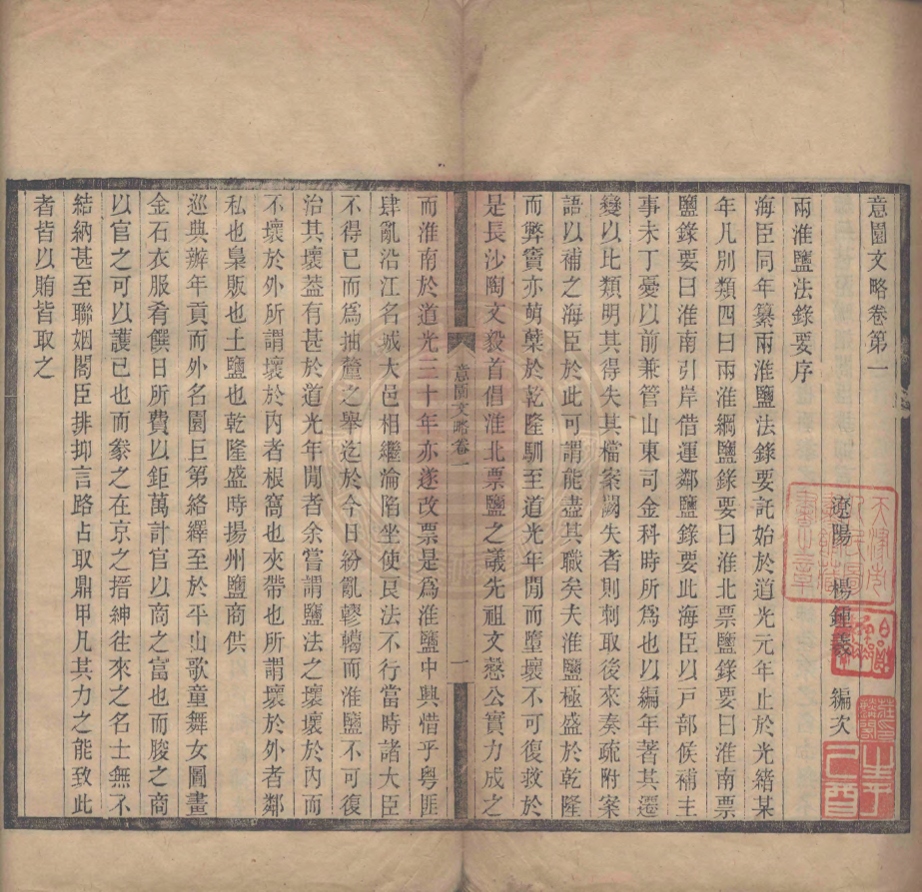 意園文略卷第一
遼陽 楊鍾羲 編次
兩淮鹽法錄要序
海臣同年纂兩淮鹽法錄要託始於道光元年止於光緒某
年凡別類四曰兩淮綱鹽錄要曰淮北票鹽錄要曰淮南票
鹽錄要曰淮南引岸借運鄰鹽錄要此海臣以戸部候補主
事未丁憂以前兼管山東司金科時所爲也以編年著其遷
變以比類明其得失其檔案闕失者則刺取後來奏疏附案
語以補之海臣於此可謂能盡其職矣夫淮鹽極盛於乾隆
而弊竇亦萌櫱於乾隆馴至道光年閒而墮壞不可復救於
是長沙陶文毅首倡淮北票鹽之議先祖文慤公實力成之
意園文略卷一
一
而淮南於道光三十年亦遂改票是爲淮鹽中興惜乎粤匪
肆亂沿江名城大邑相繼淪陷坐使良法不行當時諸大臣
不得已而爲抽釐之舉迄於今日紛亂轇轕而淮鹽不可復
治其壞葢有甚於道光年閒者余嘗謂鹽法之壞壞於內而
不壞於外所謂壞於內者根窩也夾帶也所謂壞於外者鄰
私也梟販也土鹽也乾隆盛時揚州鹽商供
巡典辦年貢而外名園巨第絡繹至於平山歌童舞女圖畫
金石衣服肴饌日所費以鉅萬計官以商之富也而朘之商
以官之可以護已也而豢之在京之搢紳往來之名士無不
結納甚至聯姻閣臣排抑言路占取鼎甲凡其力之能致此
者皆以賄皆取之